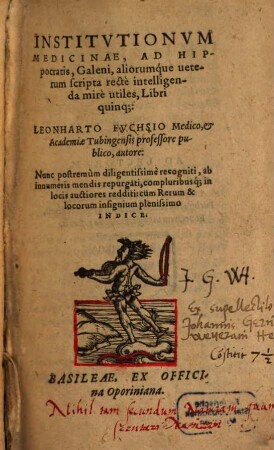 INSTITVTIONVM
MEDICINAE, AD HIP-
pocratis, Galeni, aliorumque uete-
rum scripta rectè intelligen-
da mirè utiles, Libri
quinq;:
LEONHARTO FVCHSIO Medico, &
Academiæ Tubingensis professore pu-
blico, autore:
Nunc postremùm diligentissimè recogniti, ab
innumeris mendis repurgati, compluribusq; in
locis auctiores redditi: cum Rerum &
locorum insignium plenissimo
INDICE.
J. G. W.
Ex supellectile
Johannis
Constit 7 1/2
BASILEAE, EX OFFICI-
na Oporiniana.
Nihil tam